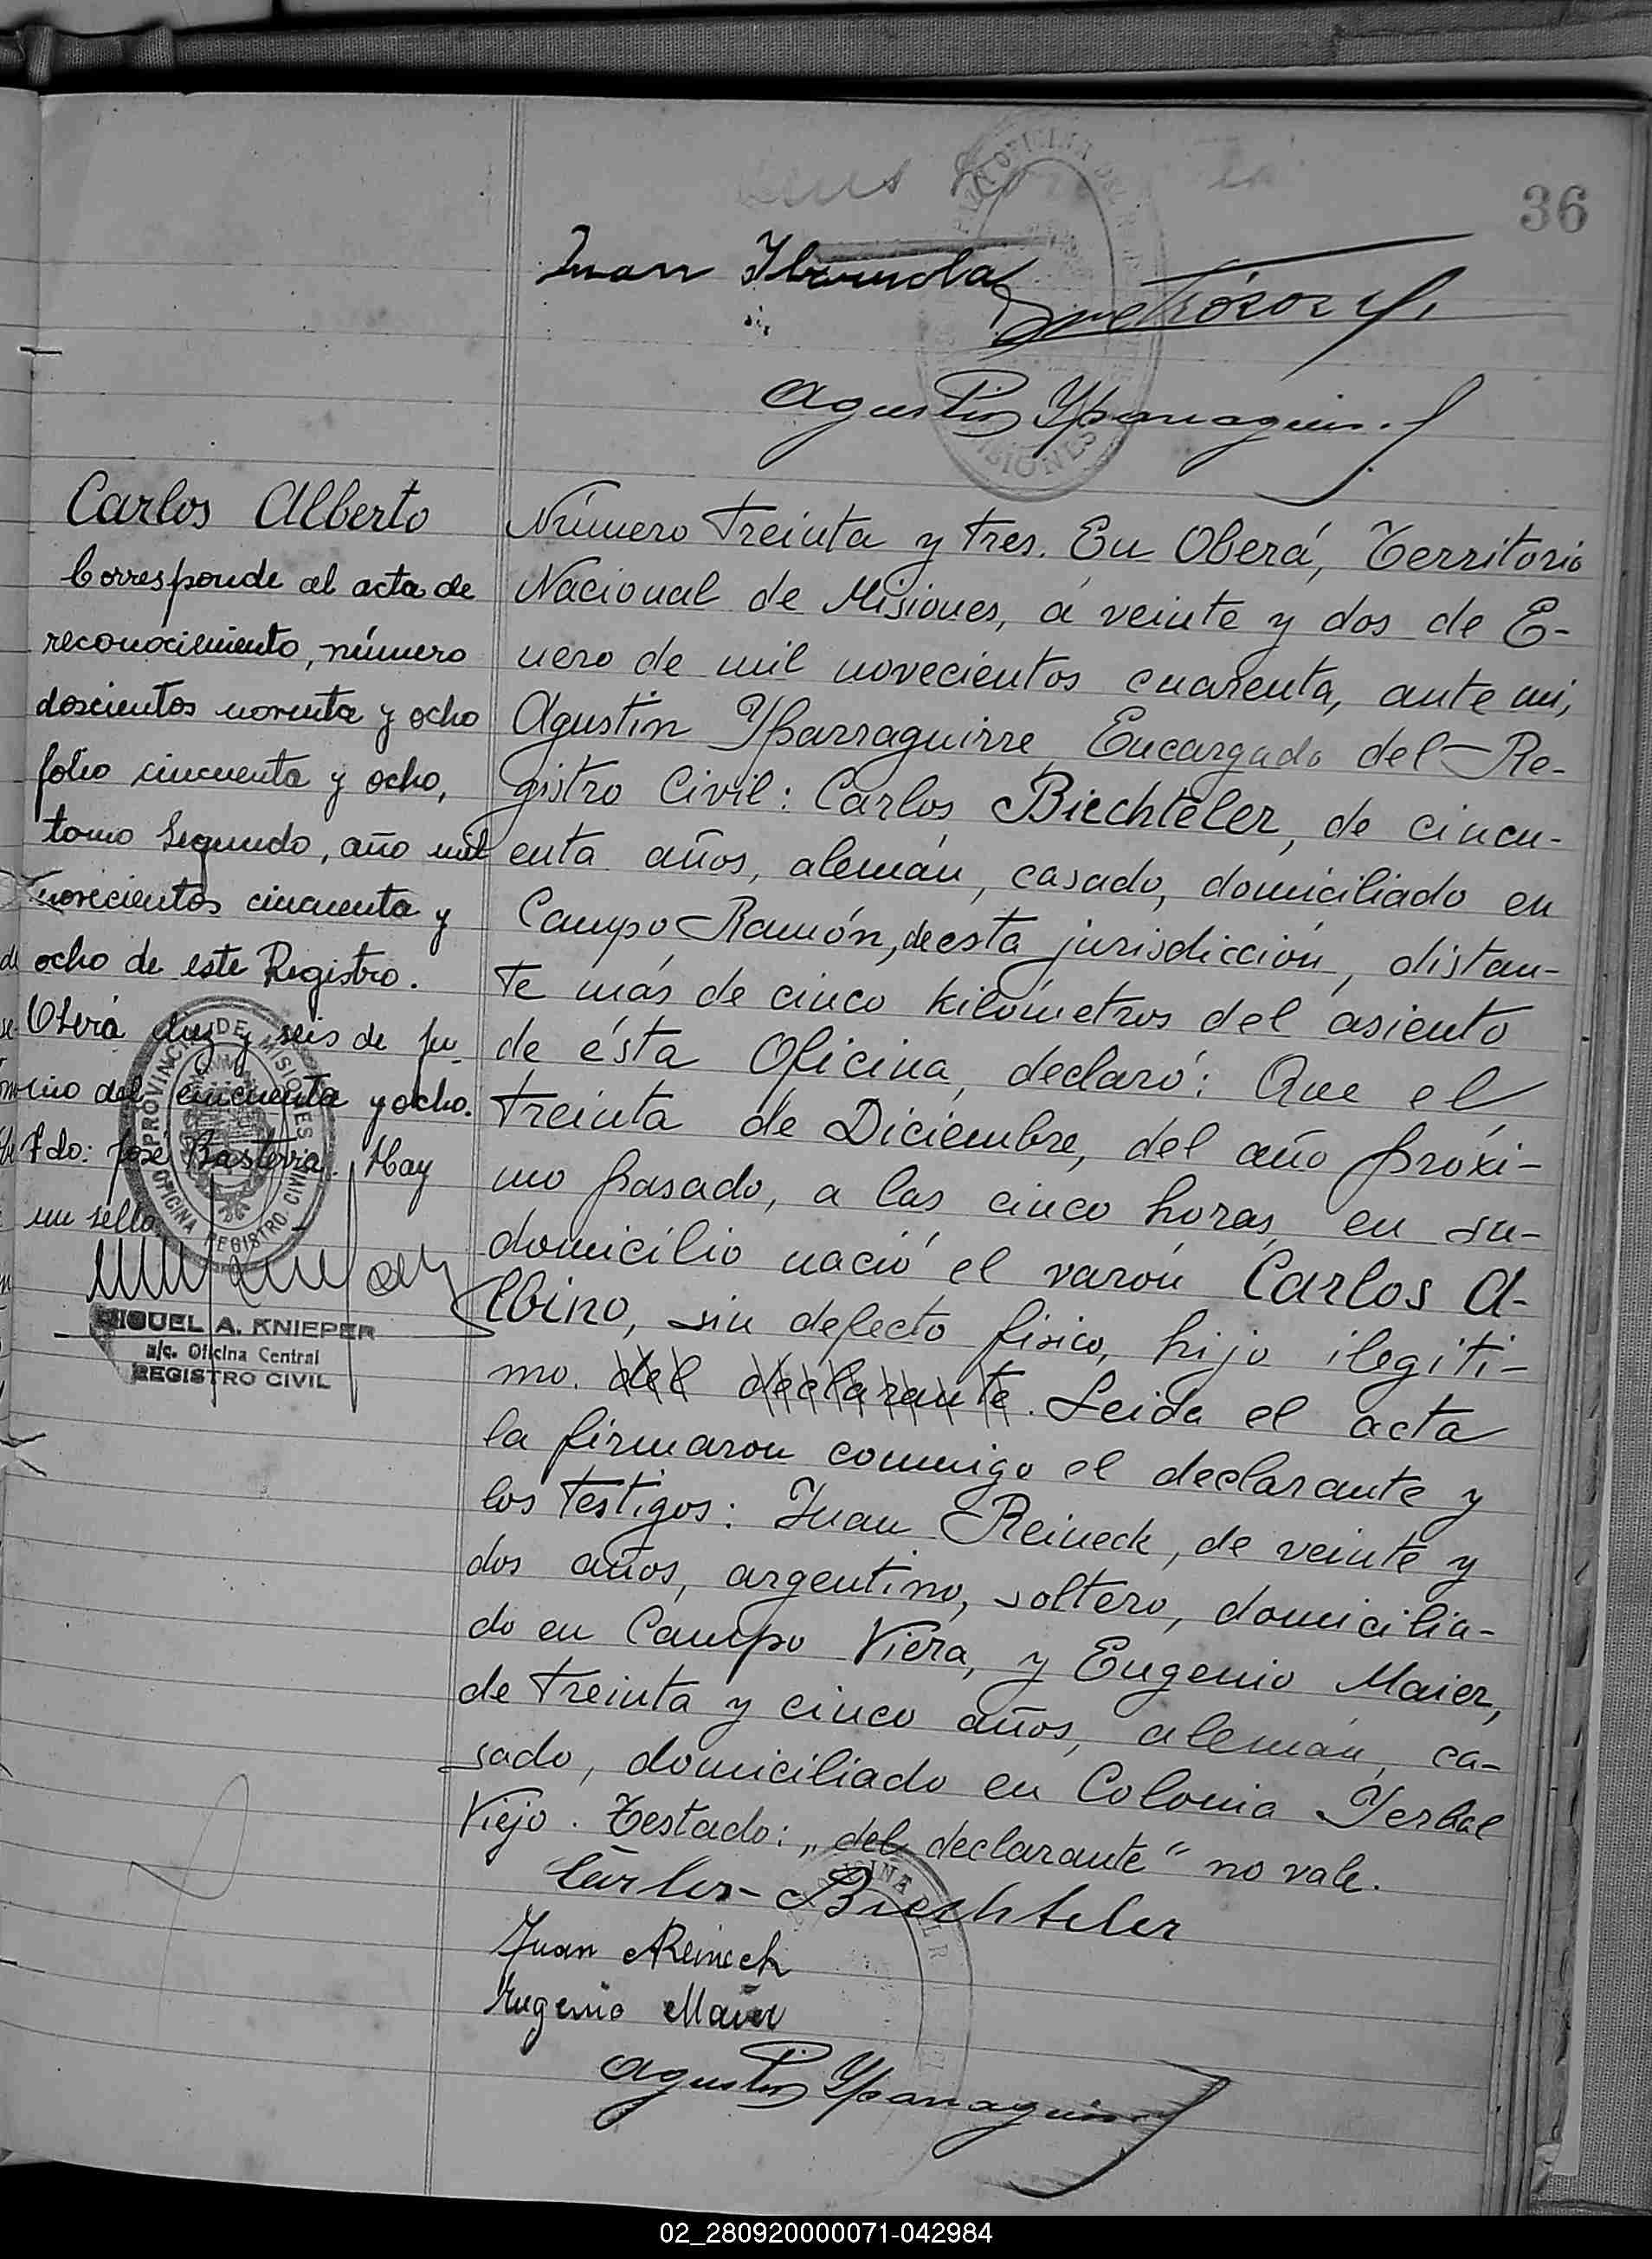 36
Juan
Agustin Ybarraguirre
Carlos Alberto
Corresponde al acta de
reconocimiento, número
doscientos noventa y ocho
folio cincuenta y ocho,
tomo Segundo, año mil
novecientos cincuenta y
ocho de este Registro.
Oberá diez y seis de ju
nio del cincuenta y ocho.
Fdo: José Basterra. Hay
un sello.
PROVINCIA DE MISIONES
OFICINA REGISTRO CIVIL
MIGUEL A. KNIEPER
a/c. Oficina Central
REGISTRO CIVIL
Número treinta y tres. En Oberá, Territorio
Nacional de Misiones, á veinte y dos de E-
nero de mil novecientos cuarenta, ante mi,
Agustin Ybarraguirre Encargado del Re-
gistro Civil: Carlos Biechteler, de cincu-
enta años, alemán, casado, domiciliado en
Campo Ramón, de esta jurisdicción, distan-
te más de cinco kilómetros del asiento
de ésta Oficina, declaró: Que el
treinta de Diciembre, del año próxi-
mo pasado, a las cinco horas, en su-
domicilio nació el varón Carlos A-
lbino, sin defecto fisico, hijo ilegiti-
mo. del declarante. Leida el acta
la firmaron conmigo el declarante y
los testigos: Juan Reineck, de veinte y
dos años, argentino, soltero, domicilia-
do en Campo Viera, y Eugenio Maier,
de treinta y cinco años, alemán, ca-
sado, domiciliado en Colonia Yerbal
Viejo. Testado: „del declarante" no vale.
Carlos Biechteler
Juan Reineck
Eugenio Maier
Agustin Ybarraguirre
02_280920000071-042984